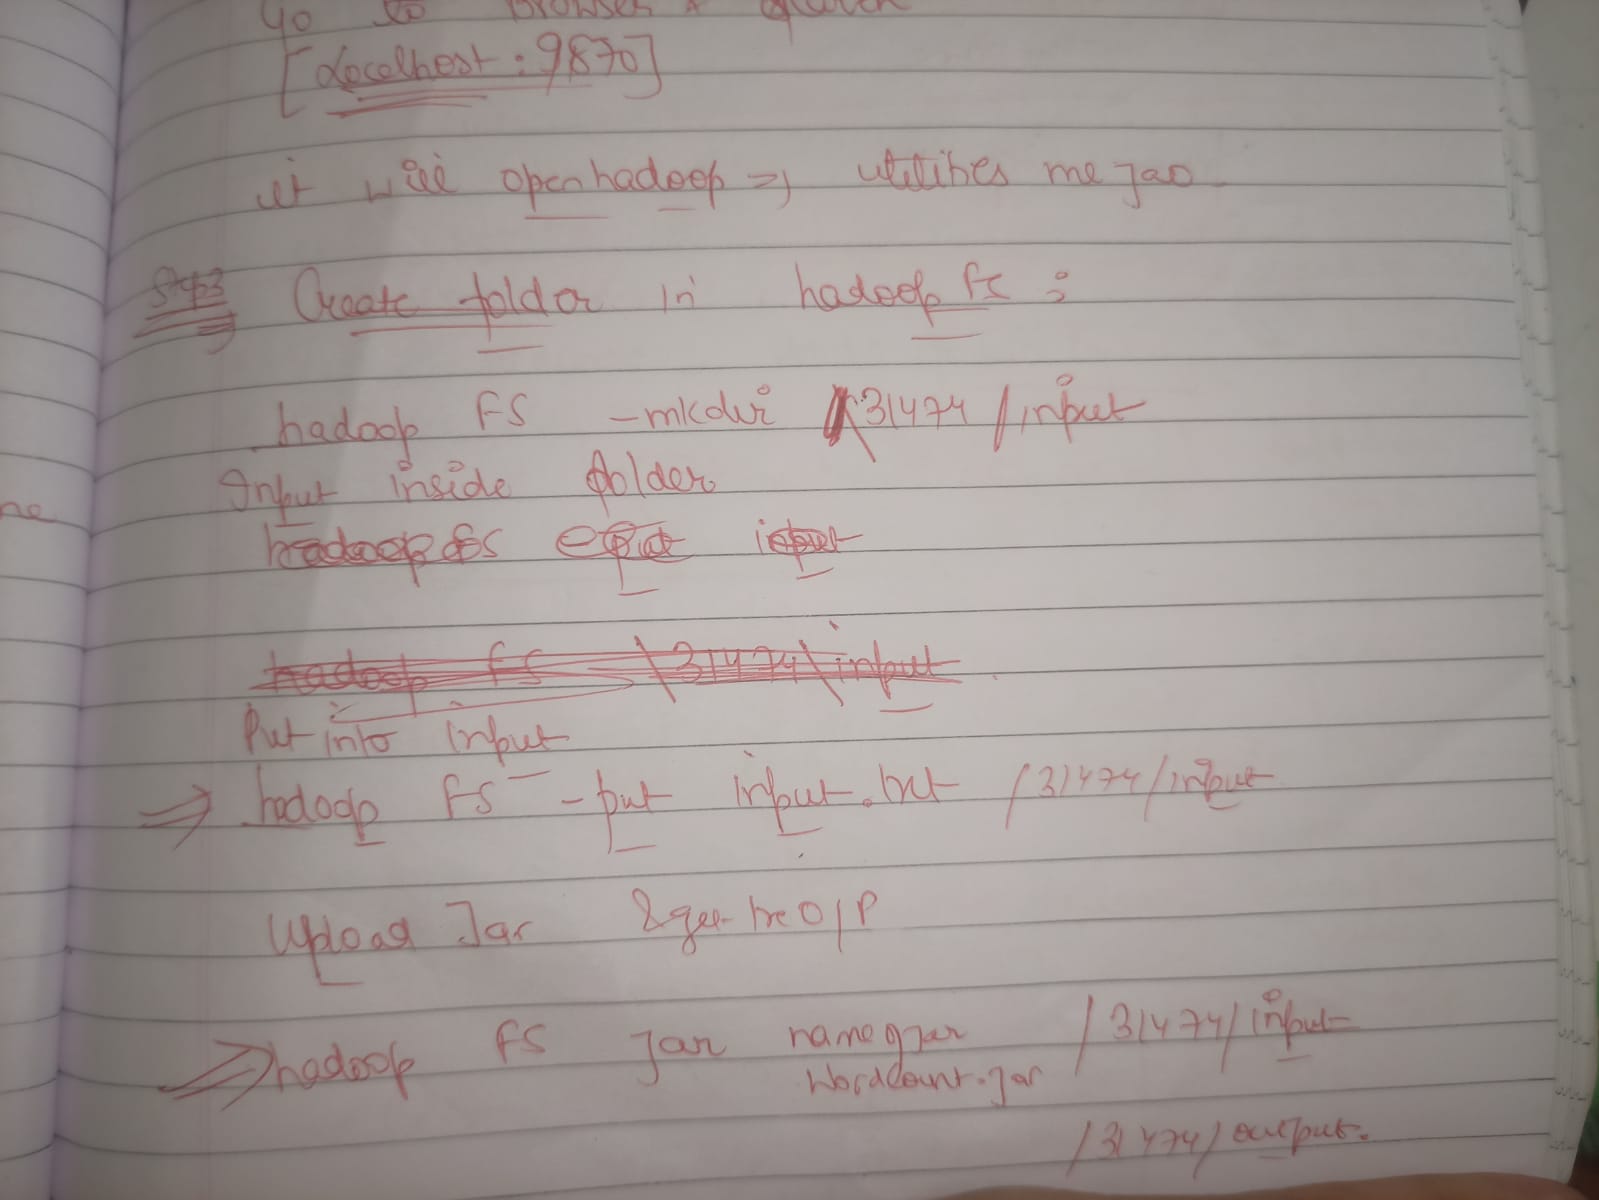 Go to browser &
[Localhost : 9870]
it will open hadoop => utilities me jao
Step3 Create folder in hadoop fs :
hadoop FS -mkdir \31474 /input
Input inside folder
hadoop fs input
hadoop fs \31474\input
Put into input
=> hadoop FS -put input.txt /31474/input
Upload Jar & get the O/P
=> hadoop FS jar name of jar /31474/input
WordCount.jar
/31474/output.